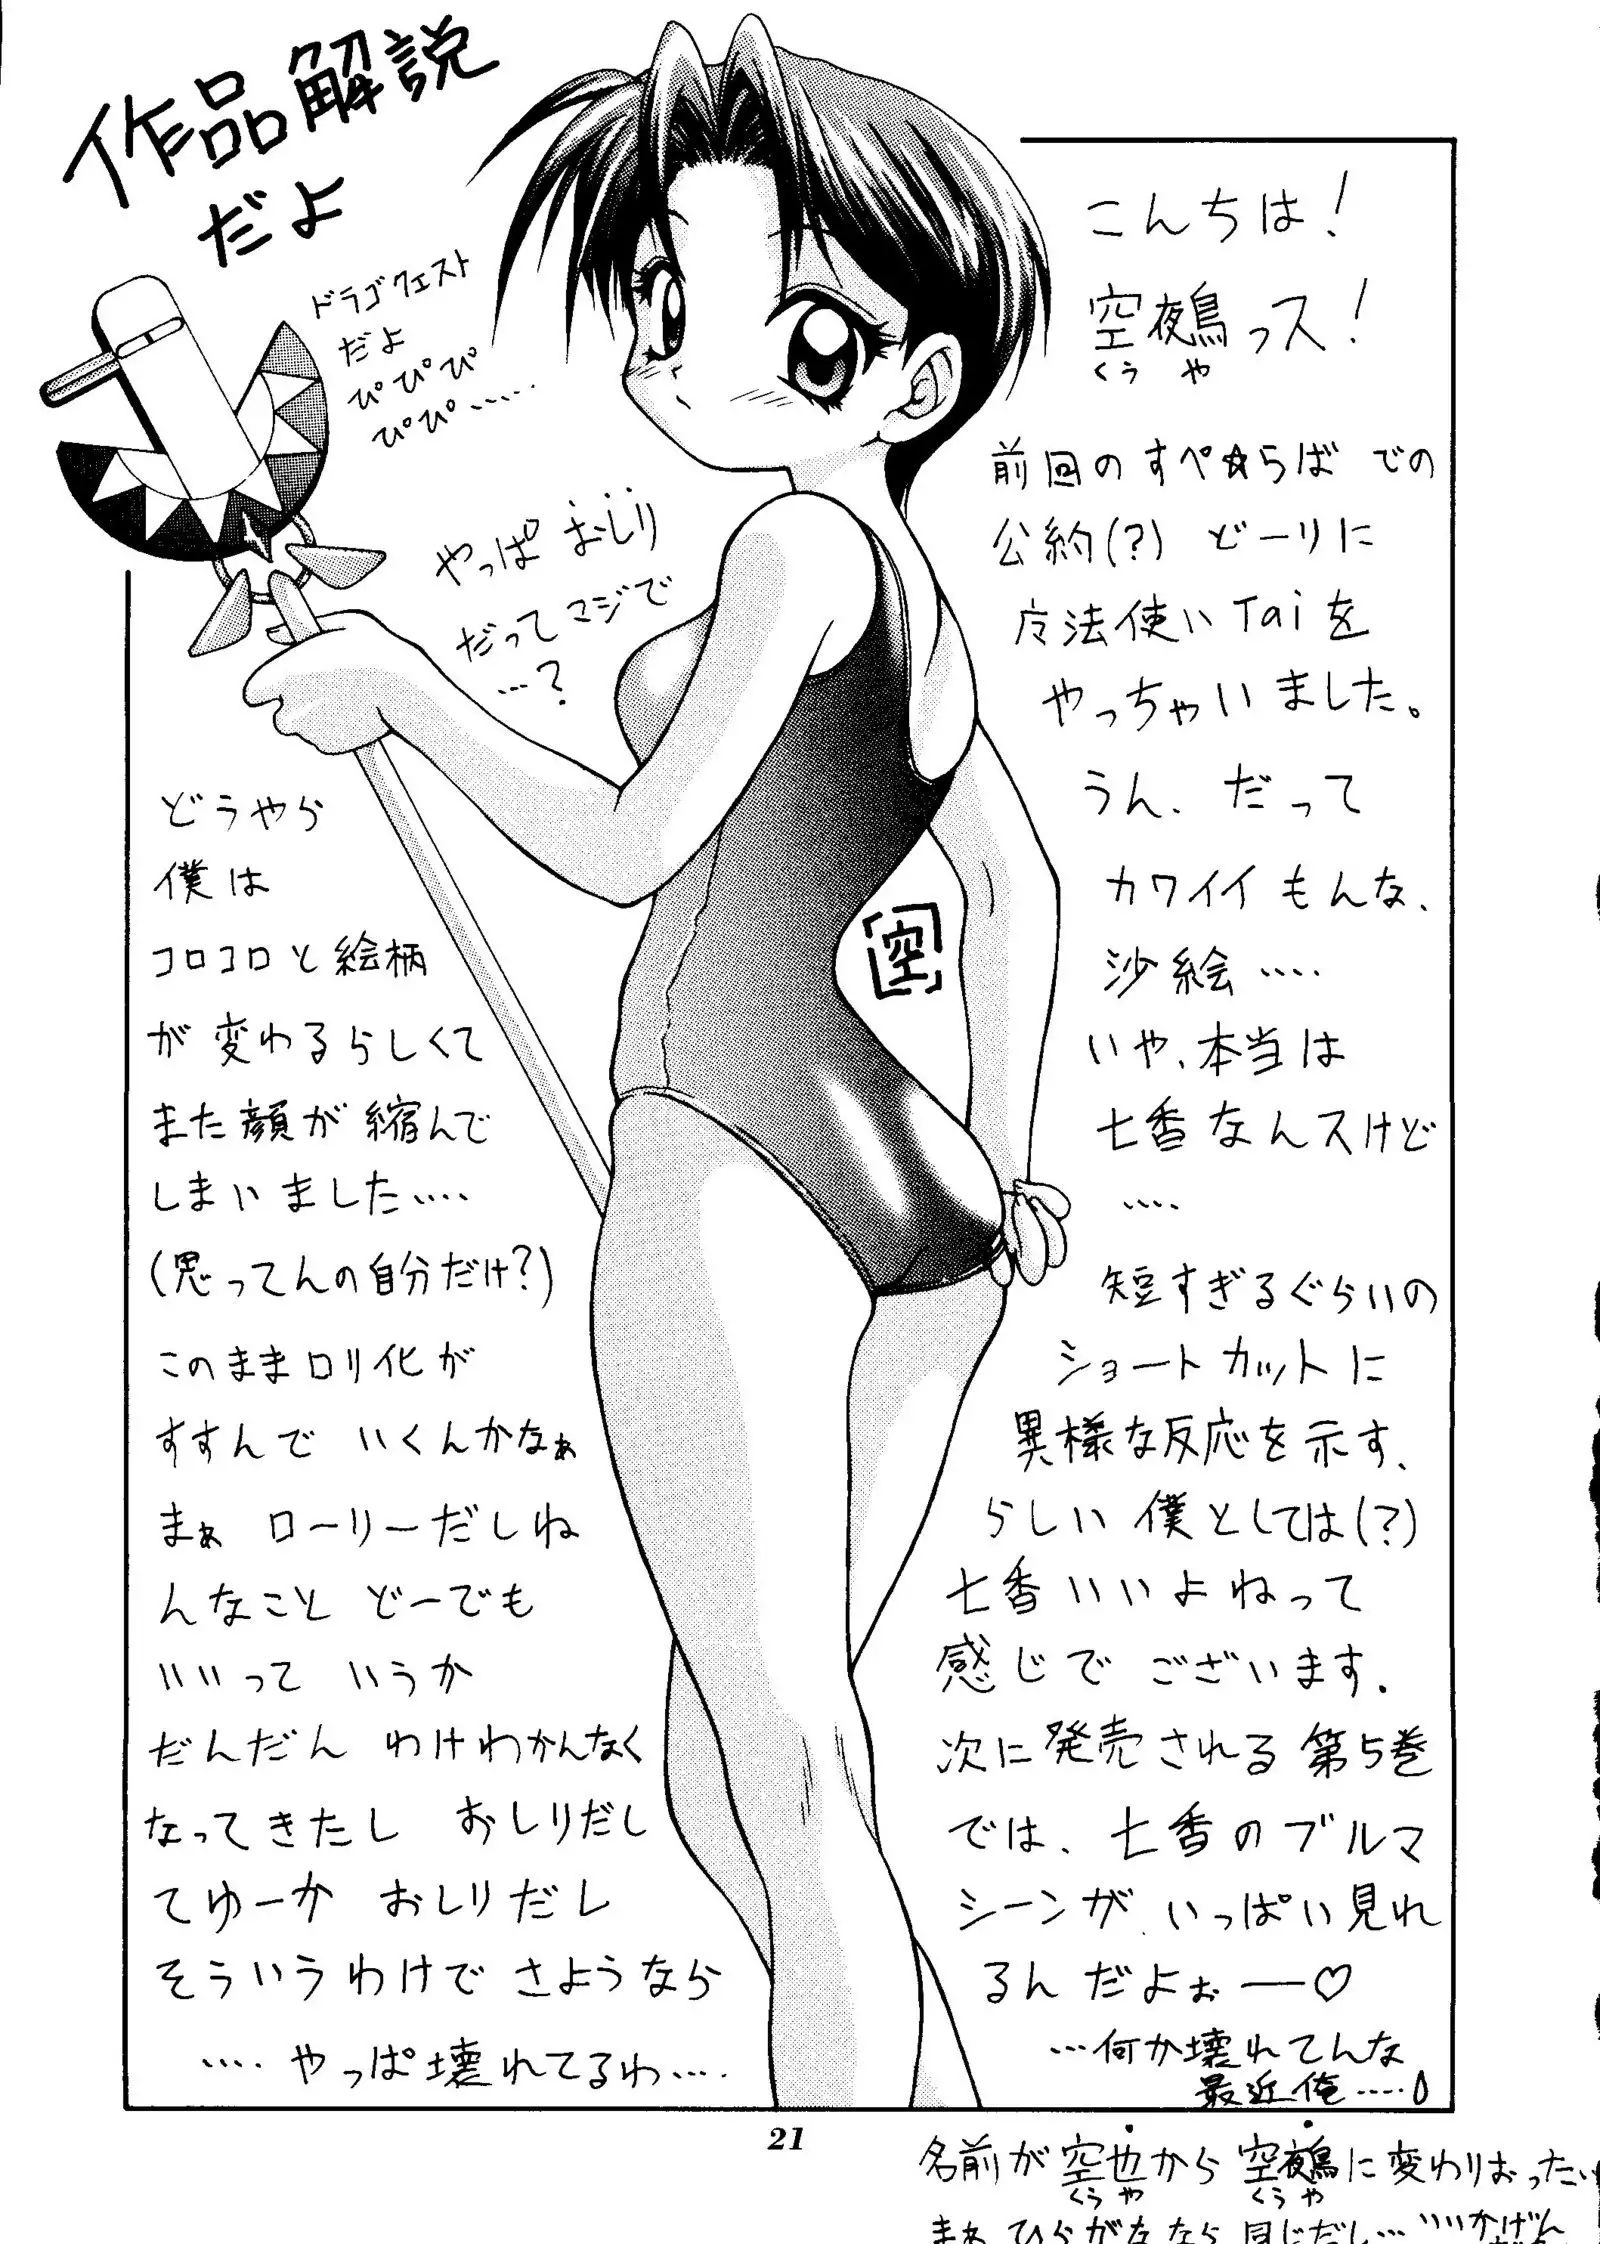 作品解説
だよ
ドラゴクエスト
だよ
ぴぴぴ
ぴぴ……
やっぱおしり
だってマジで
…?
こんちは!
空夜鳥っス!
くうや
前回のすぺ☆らばでの
公約(?)どーりに
魔法使いTaiを
やっちゃいました。
うん、だって
カワイイもんな、
沙絵……
いや、本当は
七香なんスけど
……
短すぎるぐらいの
ショートカットに
異様な反応を示す、
らしい僕としては(?)
七香いいよねって
感じでございます.
次に発売される第5巻
では、七香のブルマ
シーンがいっぱい見れ
るんだよぉー♡
…何か壊れてんな
最近俺……
空
どうやら
僕は
コロコロと絵柄
が変わるらしくて
また顔が縮んで
しまいました……
(思ってんの自分だけ?)
このままロリ化が
すすんでいくんかなぁ
まぁローリーだしね
んなことどーでも
いいっていうか
だんだんわけわかんなく
なってきたしおしりだし
てゆーかおしりだし
そういうわけでさようなら
……やっぱ壊れてるわ……
21
名前が空也から空夜鳥に変わりおった..
くうや くうや
まぁひらがななら同じだし…いいかげん